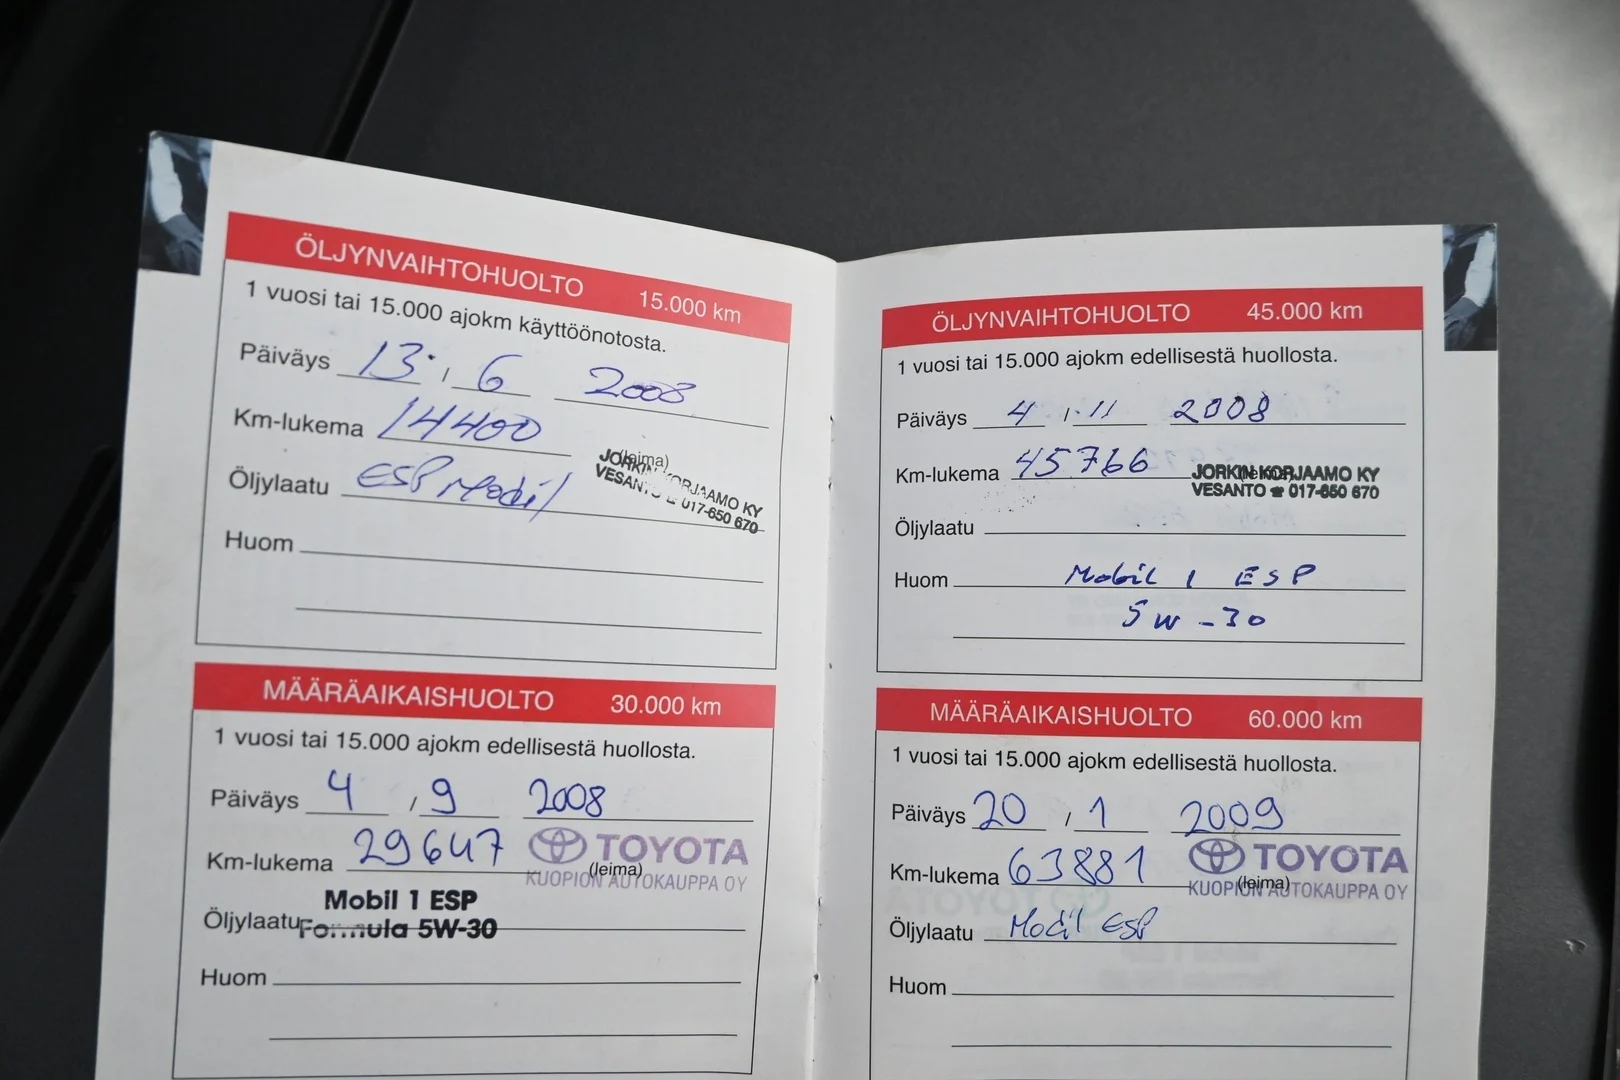 ÖLJYNVAIHTOHUOLTO 15.000 km
1 vuosi tai 15.000 ajokm käyttöönotosta.
Päiväys 13. / 6 2008
Km-lukema 14400
(leima)
JORKIN KORJAAMO KY
VESANTO ☎ 017-650 670
Öljylaatu ESP Mobil
Huom
MÄÄRÄAIKAISHUOLTO 30.000 km
1 vuosi tai 15.000 ajokm edellisestä huollosta.
Päiväys 4 / 9 2008
Km-lukema 29647
TOYOTA
(leima)
KUOPION AUTOKAUPPA OY
Mobil 1 ESP
Öljylaatu Formula 5W-30
Huom
ÖLJYNVAIHTOHUOLTO 45.000 km
1 vuosi tai 15.000 ajokm edellisestä huollosta.
Päiväys 4 / 11 2008
Km-lukema 45766
(leima)
JORKIN KORJAAMO KY
VESANTO ☎ 017-650 670
Öljylaatu
Huom Mobil 1 ESP
5W-30
MÄÄRÄAIKAISHUOLTO 60.000 km
1 vuosi tai 15.000 ajokm edellisestä huollosta.
Päiväys 20 / 1 2009
Km-lukema 63881
TOYOTA
(leima)
KUOPION AUTOKAUPPA OY
Öljylaatu Mobil ESP
Huom